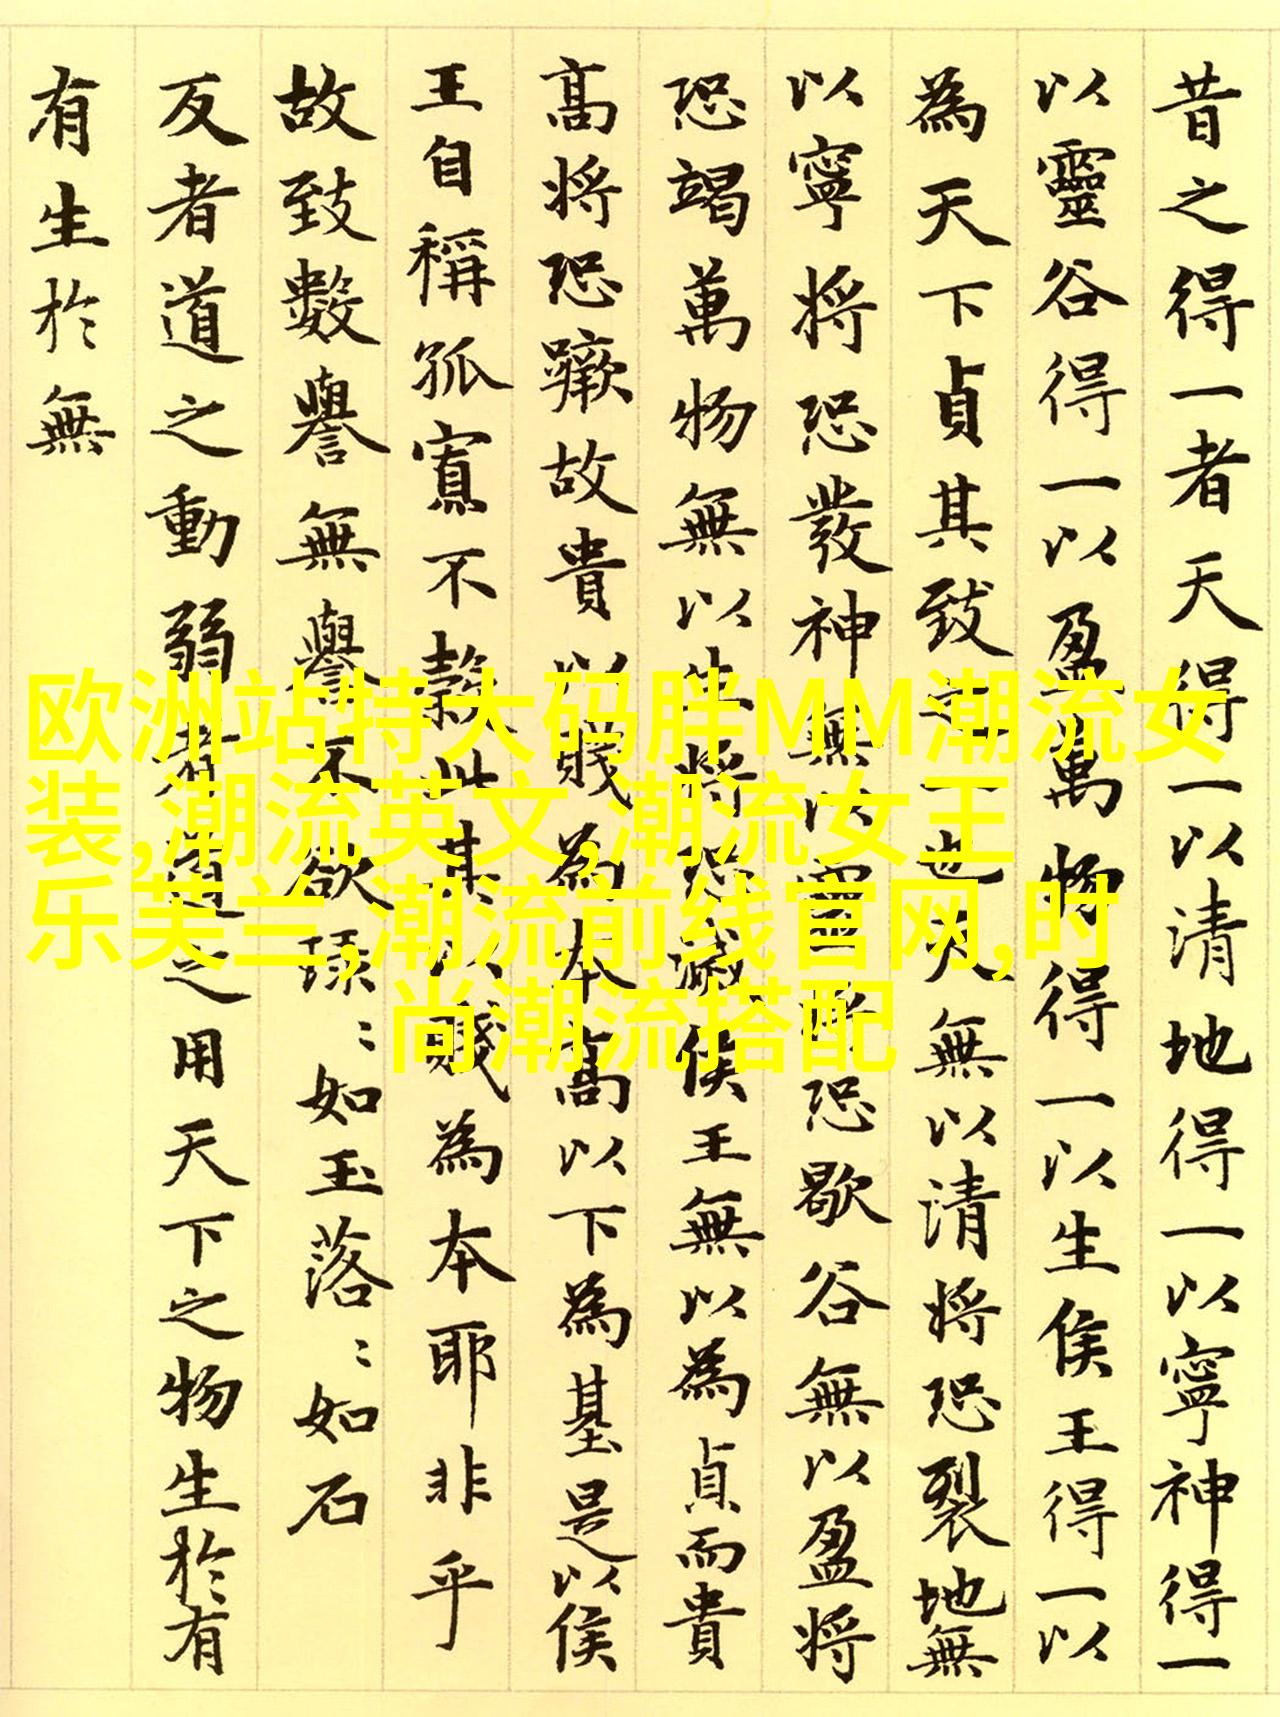 昔之得一者天得一以清地得一以寧神得一
以靈谷得一以盈萬物得一以生侯王得一以
為天下貞其致之一也天無以清將恐裂地無
以寧將恐發神無以靈將恐歇谷無以盈將
恐竭萬物無以生將恐滅侯王無以為貞而貴
高將恐蹶故貴以賤為本高以下為基是以侯
王自稱孤寡不穀此其以賤為本耶非乎
故致數譽無譽不欲琭⺀如玉落⺀如石
反者道之動弱者道之用天下之物生於有
有生於無
欧洲站特大码胖MM潮流女
装,潮流英文,潮流女王
乐芙兰,潮流前线官网,时
尚潮流搭配